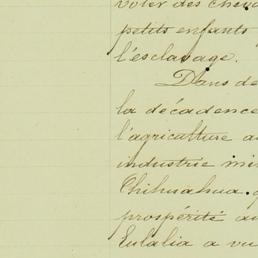 voler des cheva
petits enfants
l'esclavage.
Dans de
la décadence
l'agriculture au
industrie mi
Chihuahua.
prospérité au
Eulalia a vu